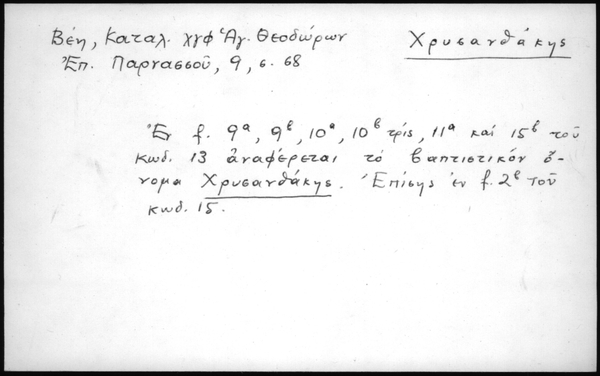 Βέη, Καταλ. χγφ Ἁγ. Θεοδώρων
Χρυσανθάκης
Ἐπ. Παρνασσοῦ, 9, σ. 68
Ἐν f. 9ᵃ, 9ᵇ, 10ᵃ, 10ᵇ τρίς, 11ᵃ καί 15ᵇ τοῦ
κωδ. 13 ἀναφέρεται τό βαπτιστικόν ὄ-
νομα Χρυσανθάκης. Ἐπίσης ἐν f. 2ᵇ τοῦ
κωδ. 15.